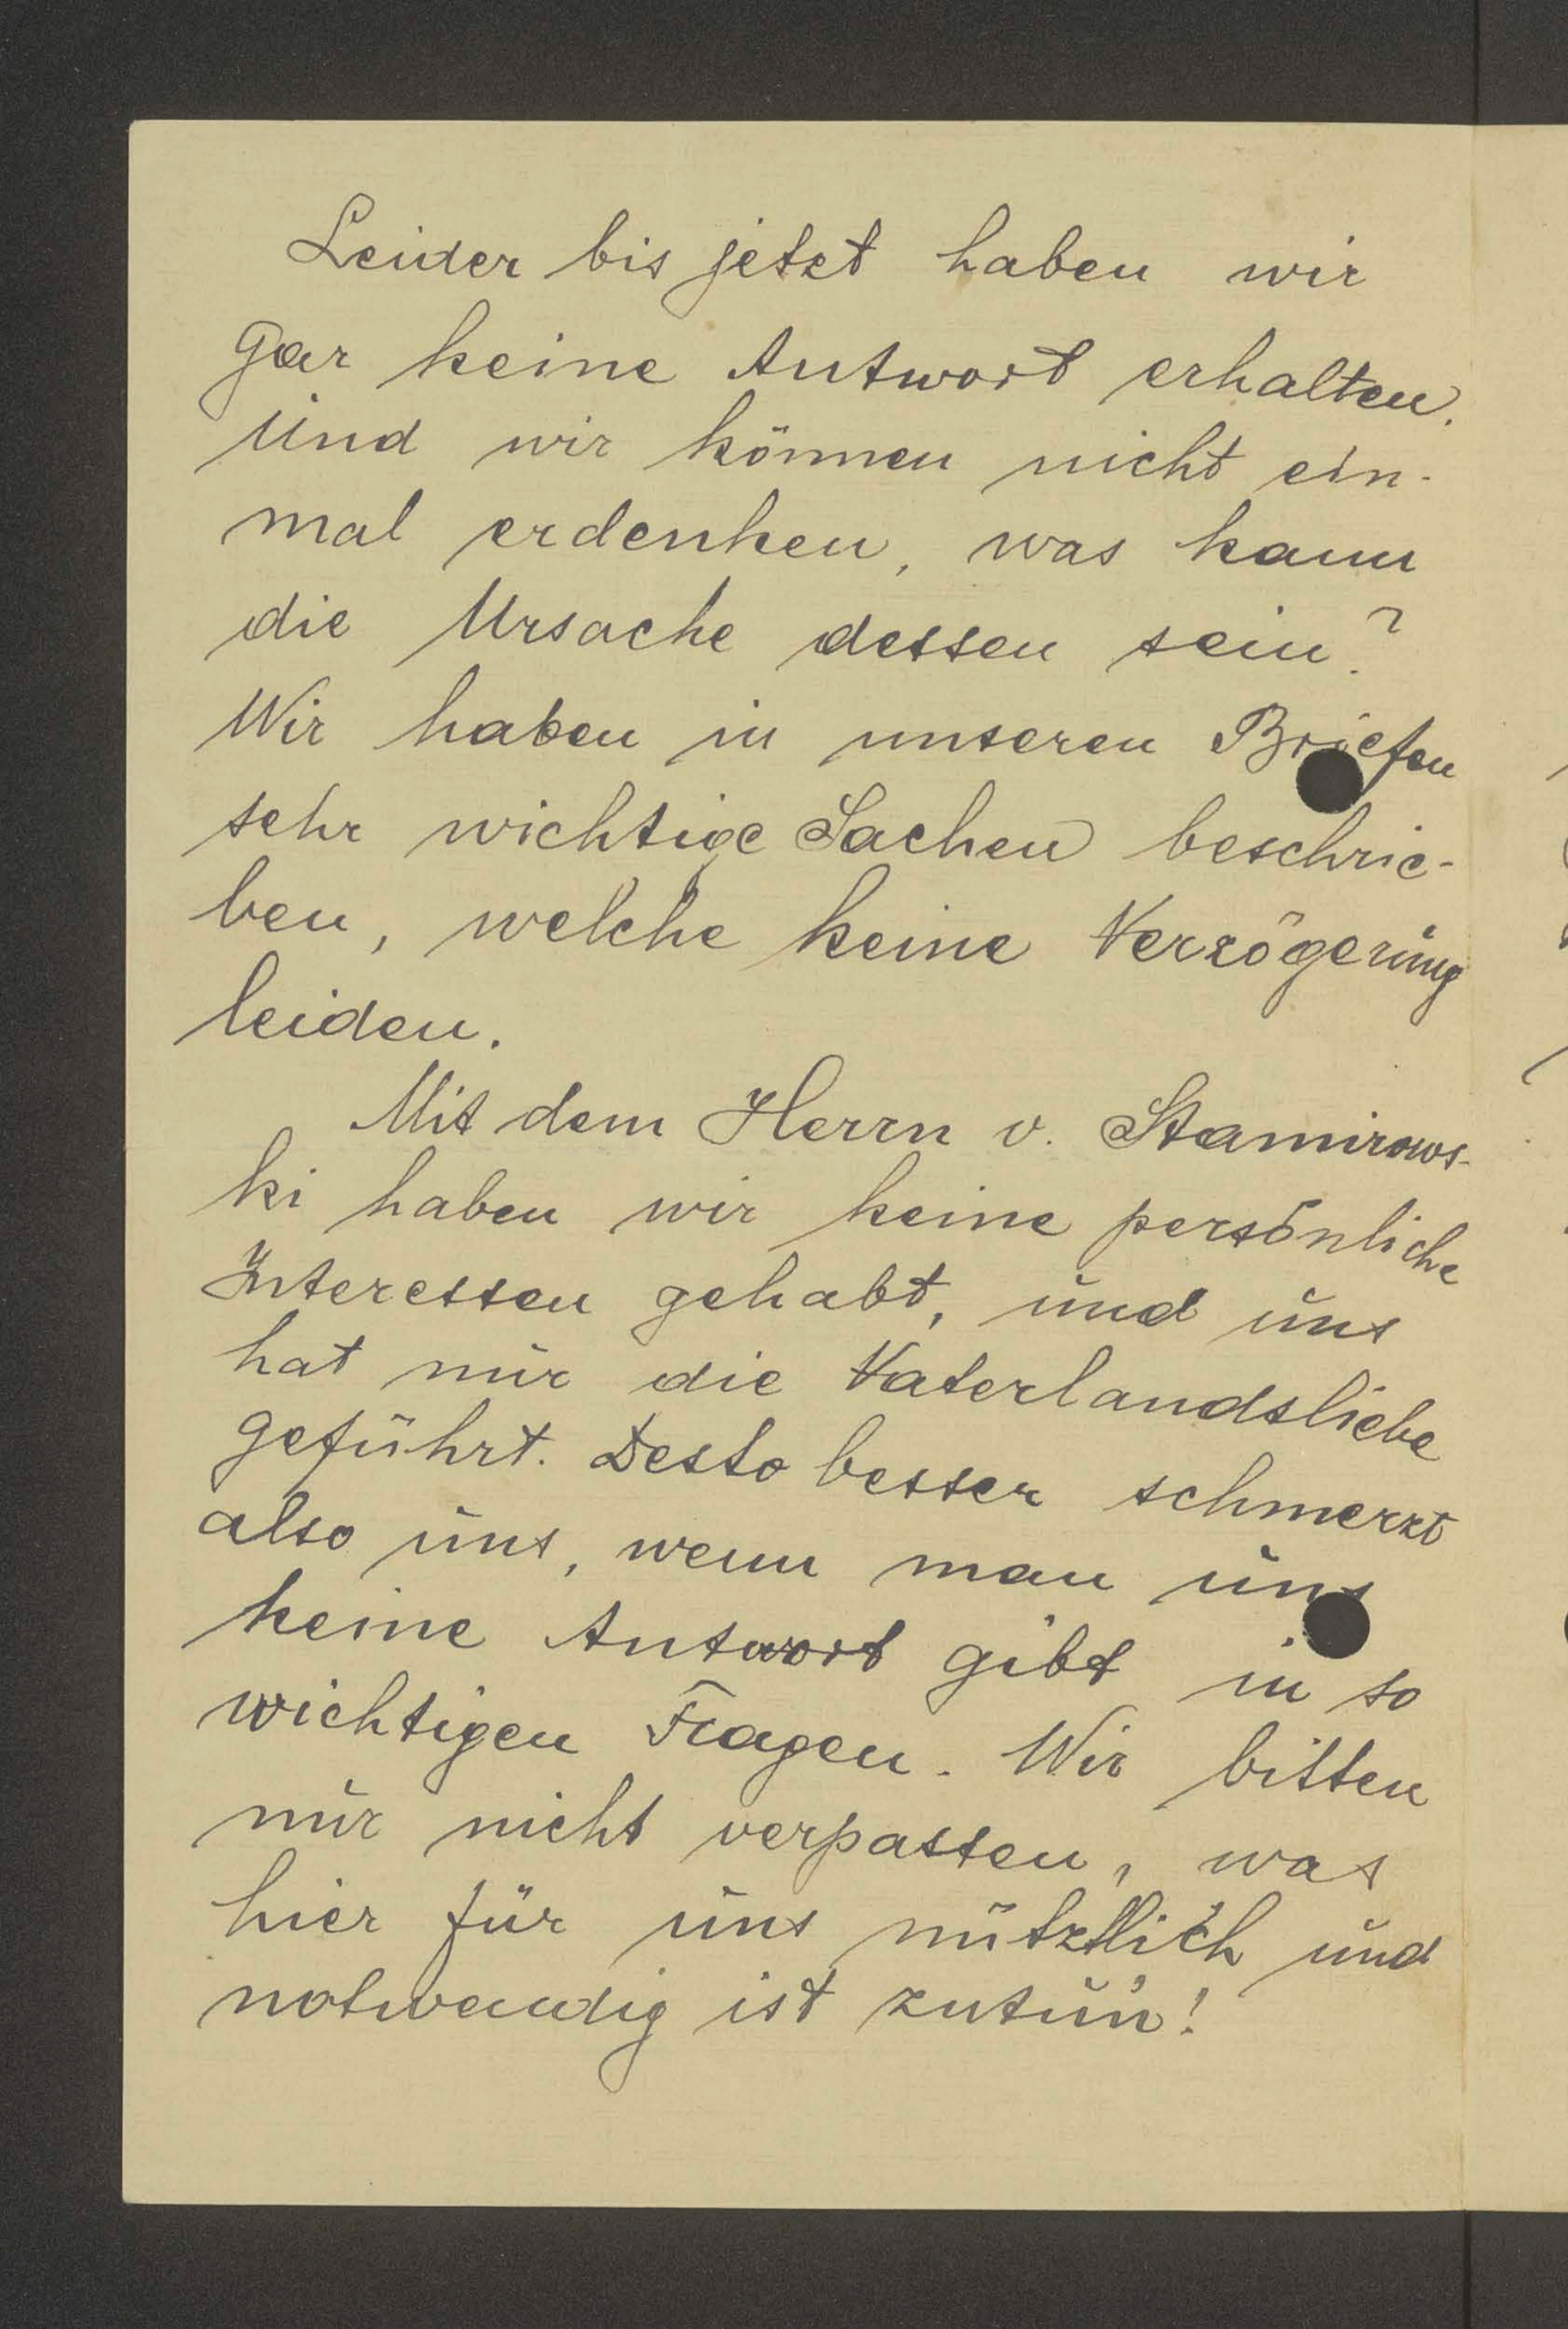 Leider bis jetzt haben wir
gar keine Antwort erhalten.
Und wir können nicht ein-
mal erdenken, was kann
die Ursache dessen sein?
Wir haben in unseren Briefen
sehr wichtige Sachen beschrie-
ben, welche keine Verzögerung
leiden.
Mit dem Herrn v. Stamirows-
ki haben wir keine persönliche
Interessen gehabt, und uns
hat nur die Vaterlandsliebe
geführt. Desto besser schmerzt
also uns, wenn man uns
keine Antwort gibt in so
wichtigen Fragen. Wir bitten
nur nicht verpassen, was
hier für uns nützlich und
notwendig ist zutun!